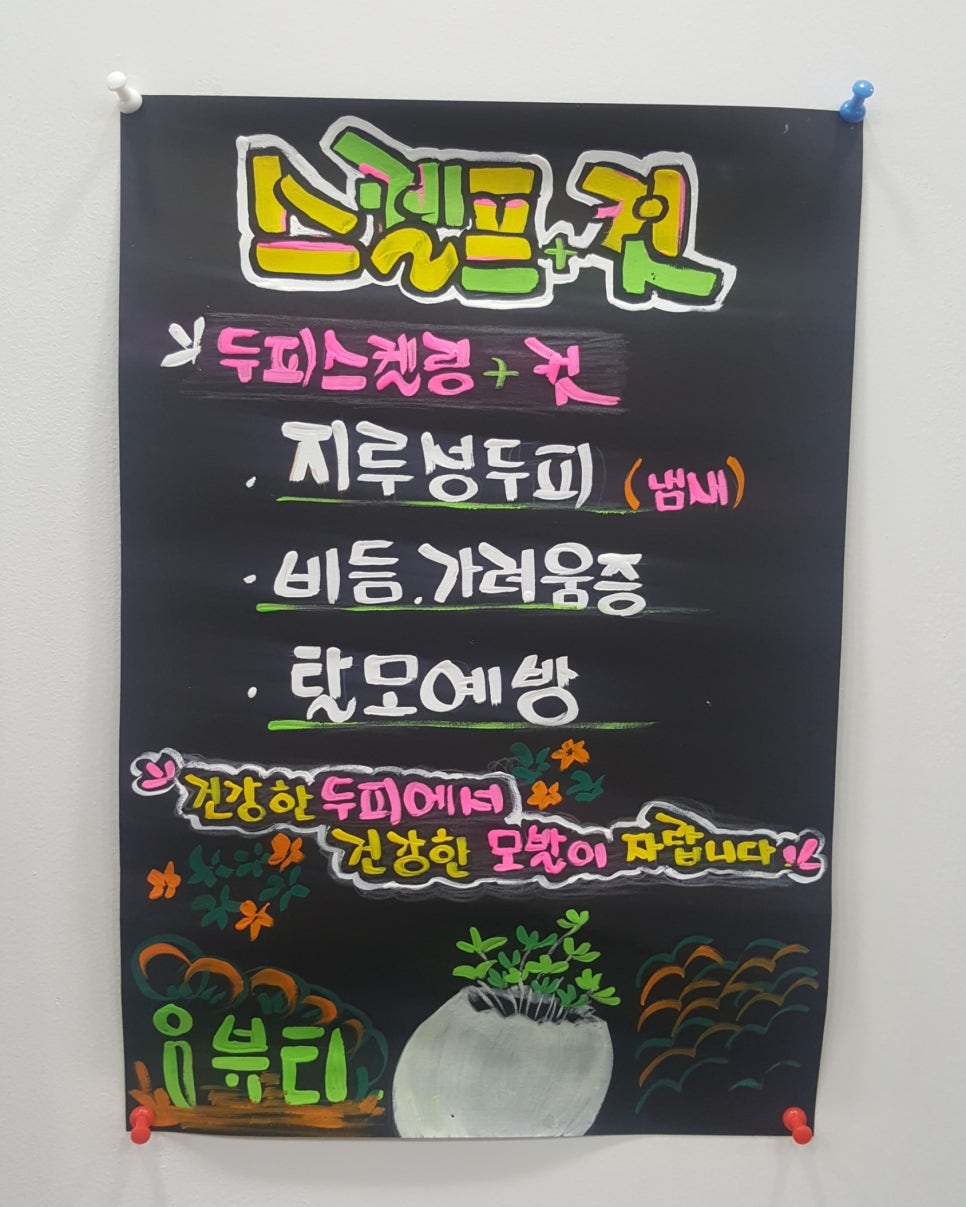 스켈프+컷
두피스켈링+컷
· 지루성두피 (냄새)
· 비듬. 가려움증
· 탈모예방
건강한 두피에서
건강한 모발이 자랍니다!!